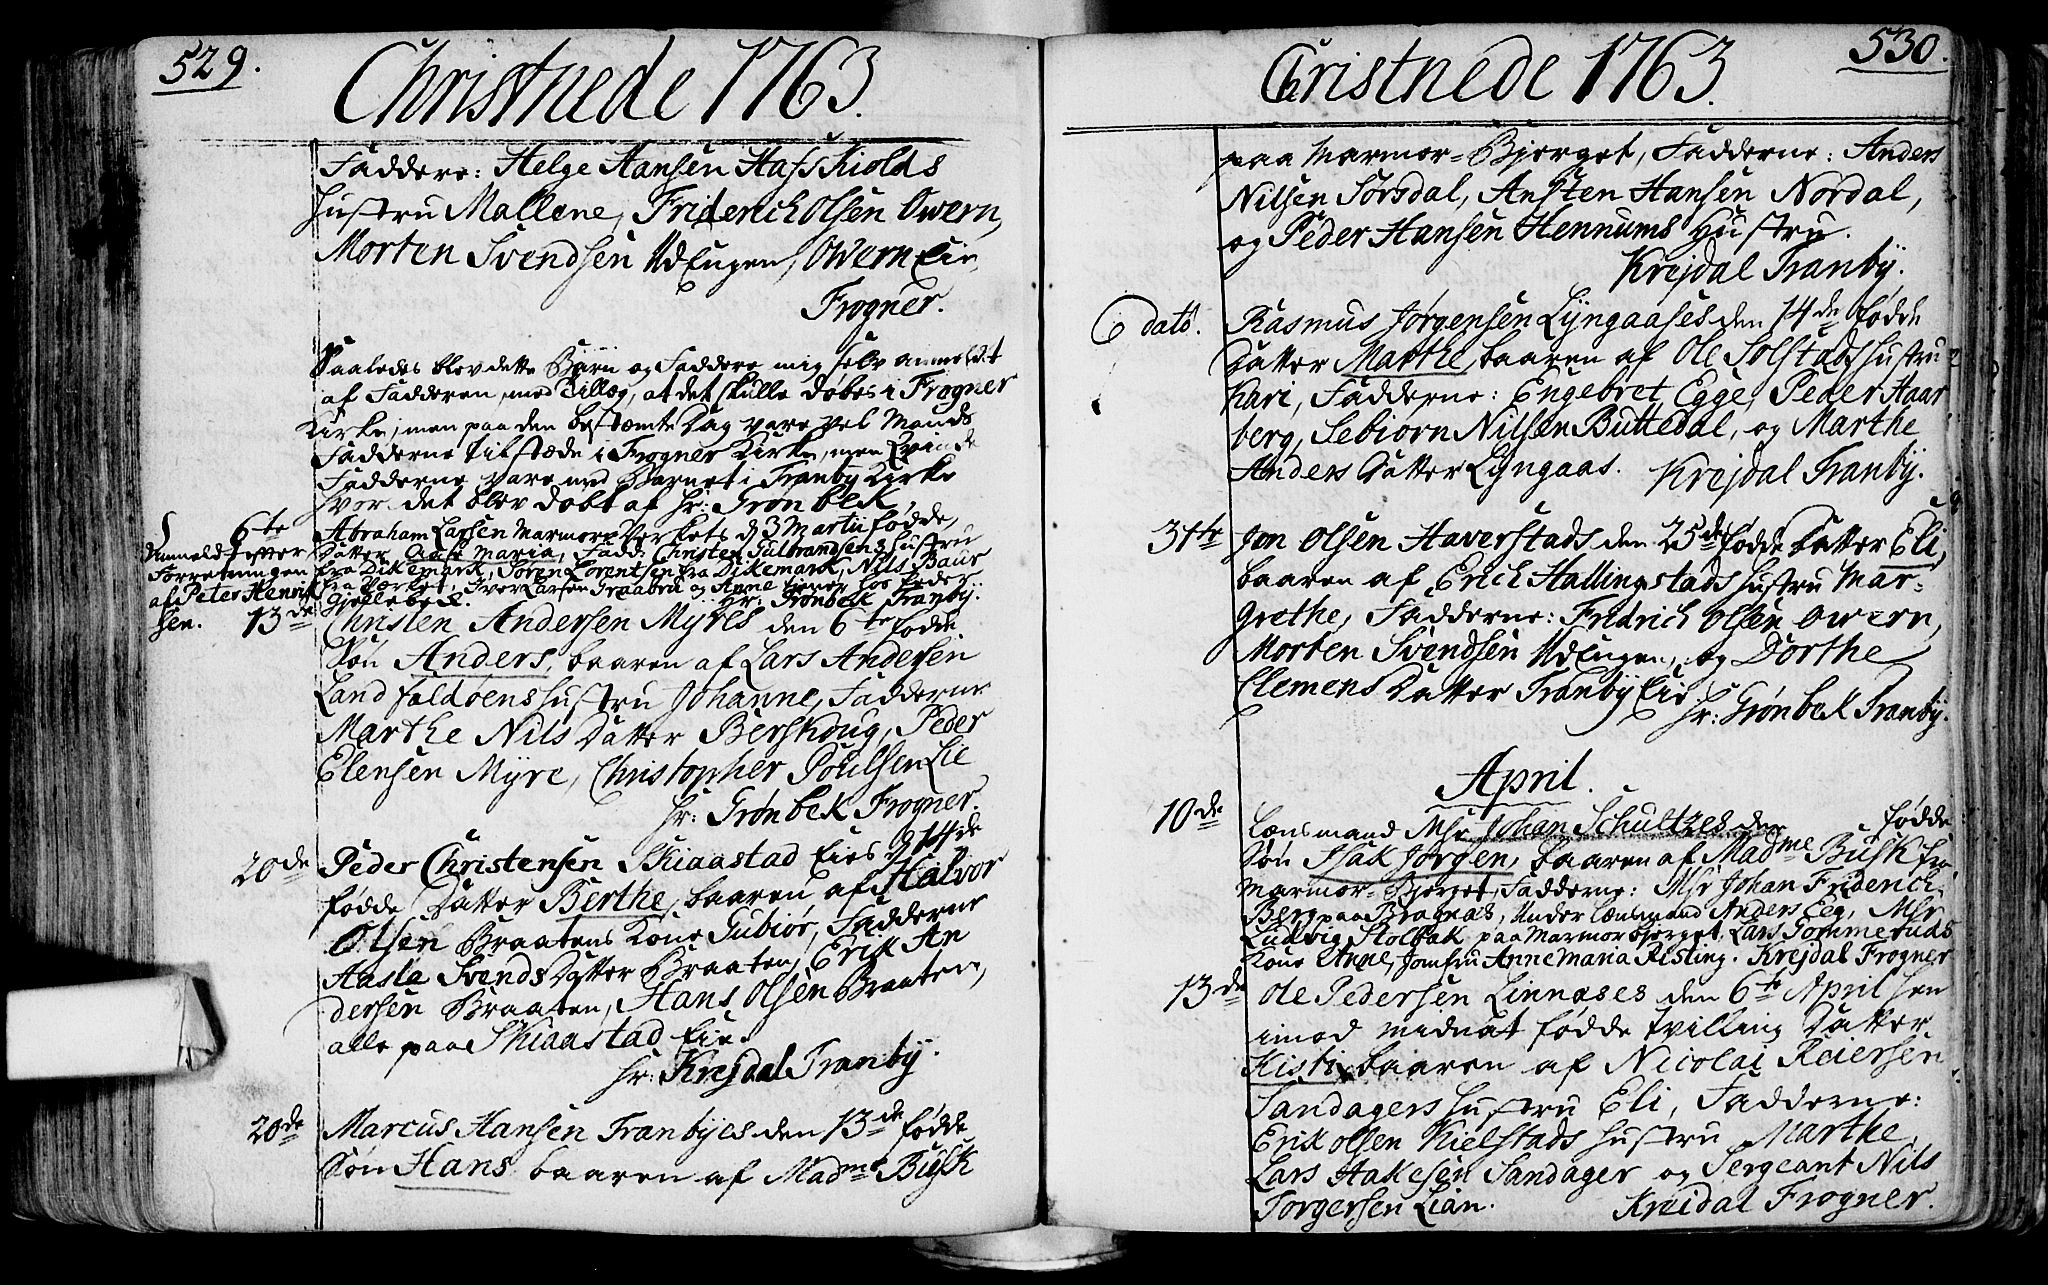 529.
Christnede 1763.
Faddere: Helge Hansen Hafskiolds
Hustru Mallene, Friderich Olsen Owern,
Morten Svendsen UdEngen, Owern Eie,
Frogner.
Saaledes blev dette Barn og Faddere mig selv anmeldet
af Fadderen, med Tillæg, at det skulle døbes i Frogner
Kirke, men paa den bestemte Dag vare vel Mands
Fadderne tilstæde i Frogner Kirke, men Qvinde
Fadderne vare med Barnet i Tranby Kirke
hvor det blev døbt af Hr: Grønbek
6te Abraham Larsen Marmor Verkets d 3 Martii fødde,
Anmeldt efter Datter Aase Maria, Fadd: Christen Gulbrandsens Hustru
Forretningen fra Dikemark, Søren Lorentsen fra Dikemark, Nils Baur
af Peter Henrik fra Værket, Iver Larsen Graabra og Anne tiener hos Peder
sen. Gjellebek. Hr: Grønbek Tranby.
13de Christen Andersen Myres den 6te fødde
Søn Anders, baaren af Lars Andersen
Landfaldøens Hustru Johanne, Fadderne
Marthe Nils Datter Berskoug, Peder
Elensen Myre, Christopher Poulsen Lie
Hr: Grønbek Frogner.
20de Peder Christensen Skiaastad Eies d 14de
fødde Datter Berthe, baaren af Halvor
Olsen Braatens Kone Gubiør, Fadderne
Aasle Svends Datter Braaten, Erik An
dersen Braaten, Hans Olsen Braaten,
alle paa Skiaastad Eie.
Hr: Krejdal Tranby.
20de Marcus Hansen Tranbyes den 13de fødde
Søn Hans baaren af Madme Busk
530.
Christnede 1763.
paa Marmor=Bjerget, Fadderne: Anders
Nilsen Sørsdal, Ansten Hansen Nordal,
og Peder Hansen Hennums Hustru.
Krejdal Tranby.
dato. Rasmus Jørgensen Lyngaases den 14de fødde
Datter Marthe, baaren af Ole Solstads Hustru
Kari, Fadderne: Engebret Egge, Peder Haar
berg, Sebiørn Nilsen Buttedal, og Marthe
Anders Datter Lyngaas. Krejdal Tranby.
31te Jon Olsen Haverstads den 25de fødde Datter Eli,
baaren af Erich Hallingstads Hustru Mar-
grethe, Fadderne: Fredrich Olsen Owern,
Morten Svendsen UdEngen, og Dorthe
Clemens Datter Tranby Eie
Hr: Grønbek Tranby.
April.
10de Lænsmand Mr Johan Schultzes den fødde
Søn Isak Jørgen, baaren af Madme Busk fra
Marmor=Bjerget, Fadderne: Mr Johan Friderich
Berg paa Bragnæs, Under Lænsmand Anders Eeg, Mr
Ludvig Stolbak paa Marmorbjerget, Lars Gommeruds
Kone Anne, Jomfru Anne Maria Risting. Krejdal Frogner
13de Ole Pedersen Linneses den 6te April hen
imod midnat fødde tvilling Datter
Kisti, baaren af Nicolai Reiersen
Sandagers Hustru Eli, Fadderne:
Erik Olsen Kielstads Hustru Marthe,
Lars Hakesen Sandager og Sergeant Nils
Torgersen Lian. Kreidal Frogner.